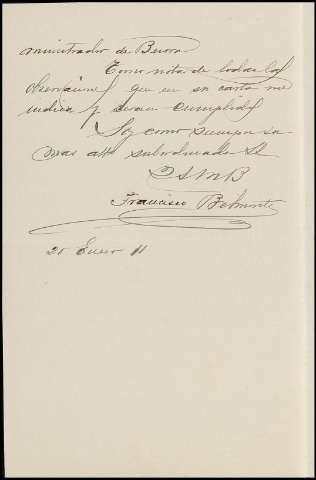 ministrador de Buora
Tomo nota de todas las
observaciones que en su carta me
indica y seran cumplidas
Soy como siempre su
mas atto subordinado Q
B S M B
Francisco Belmonte
20 Enero 11